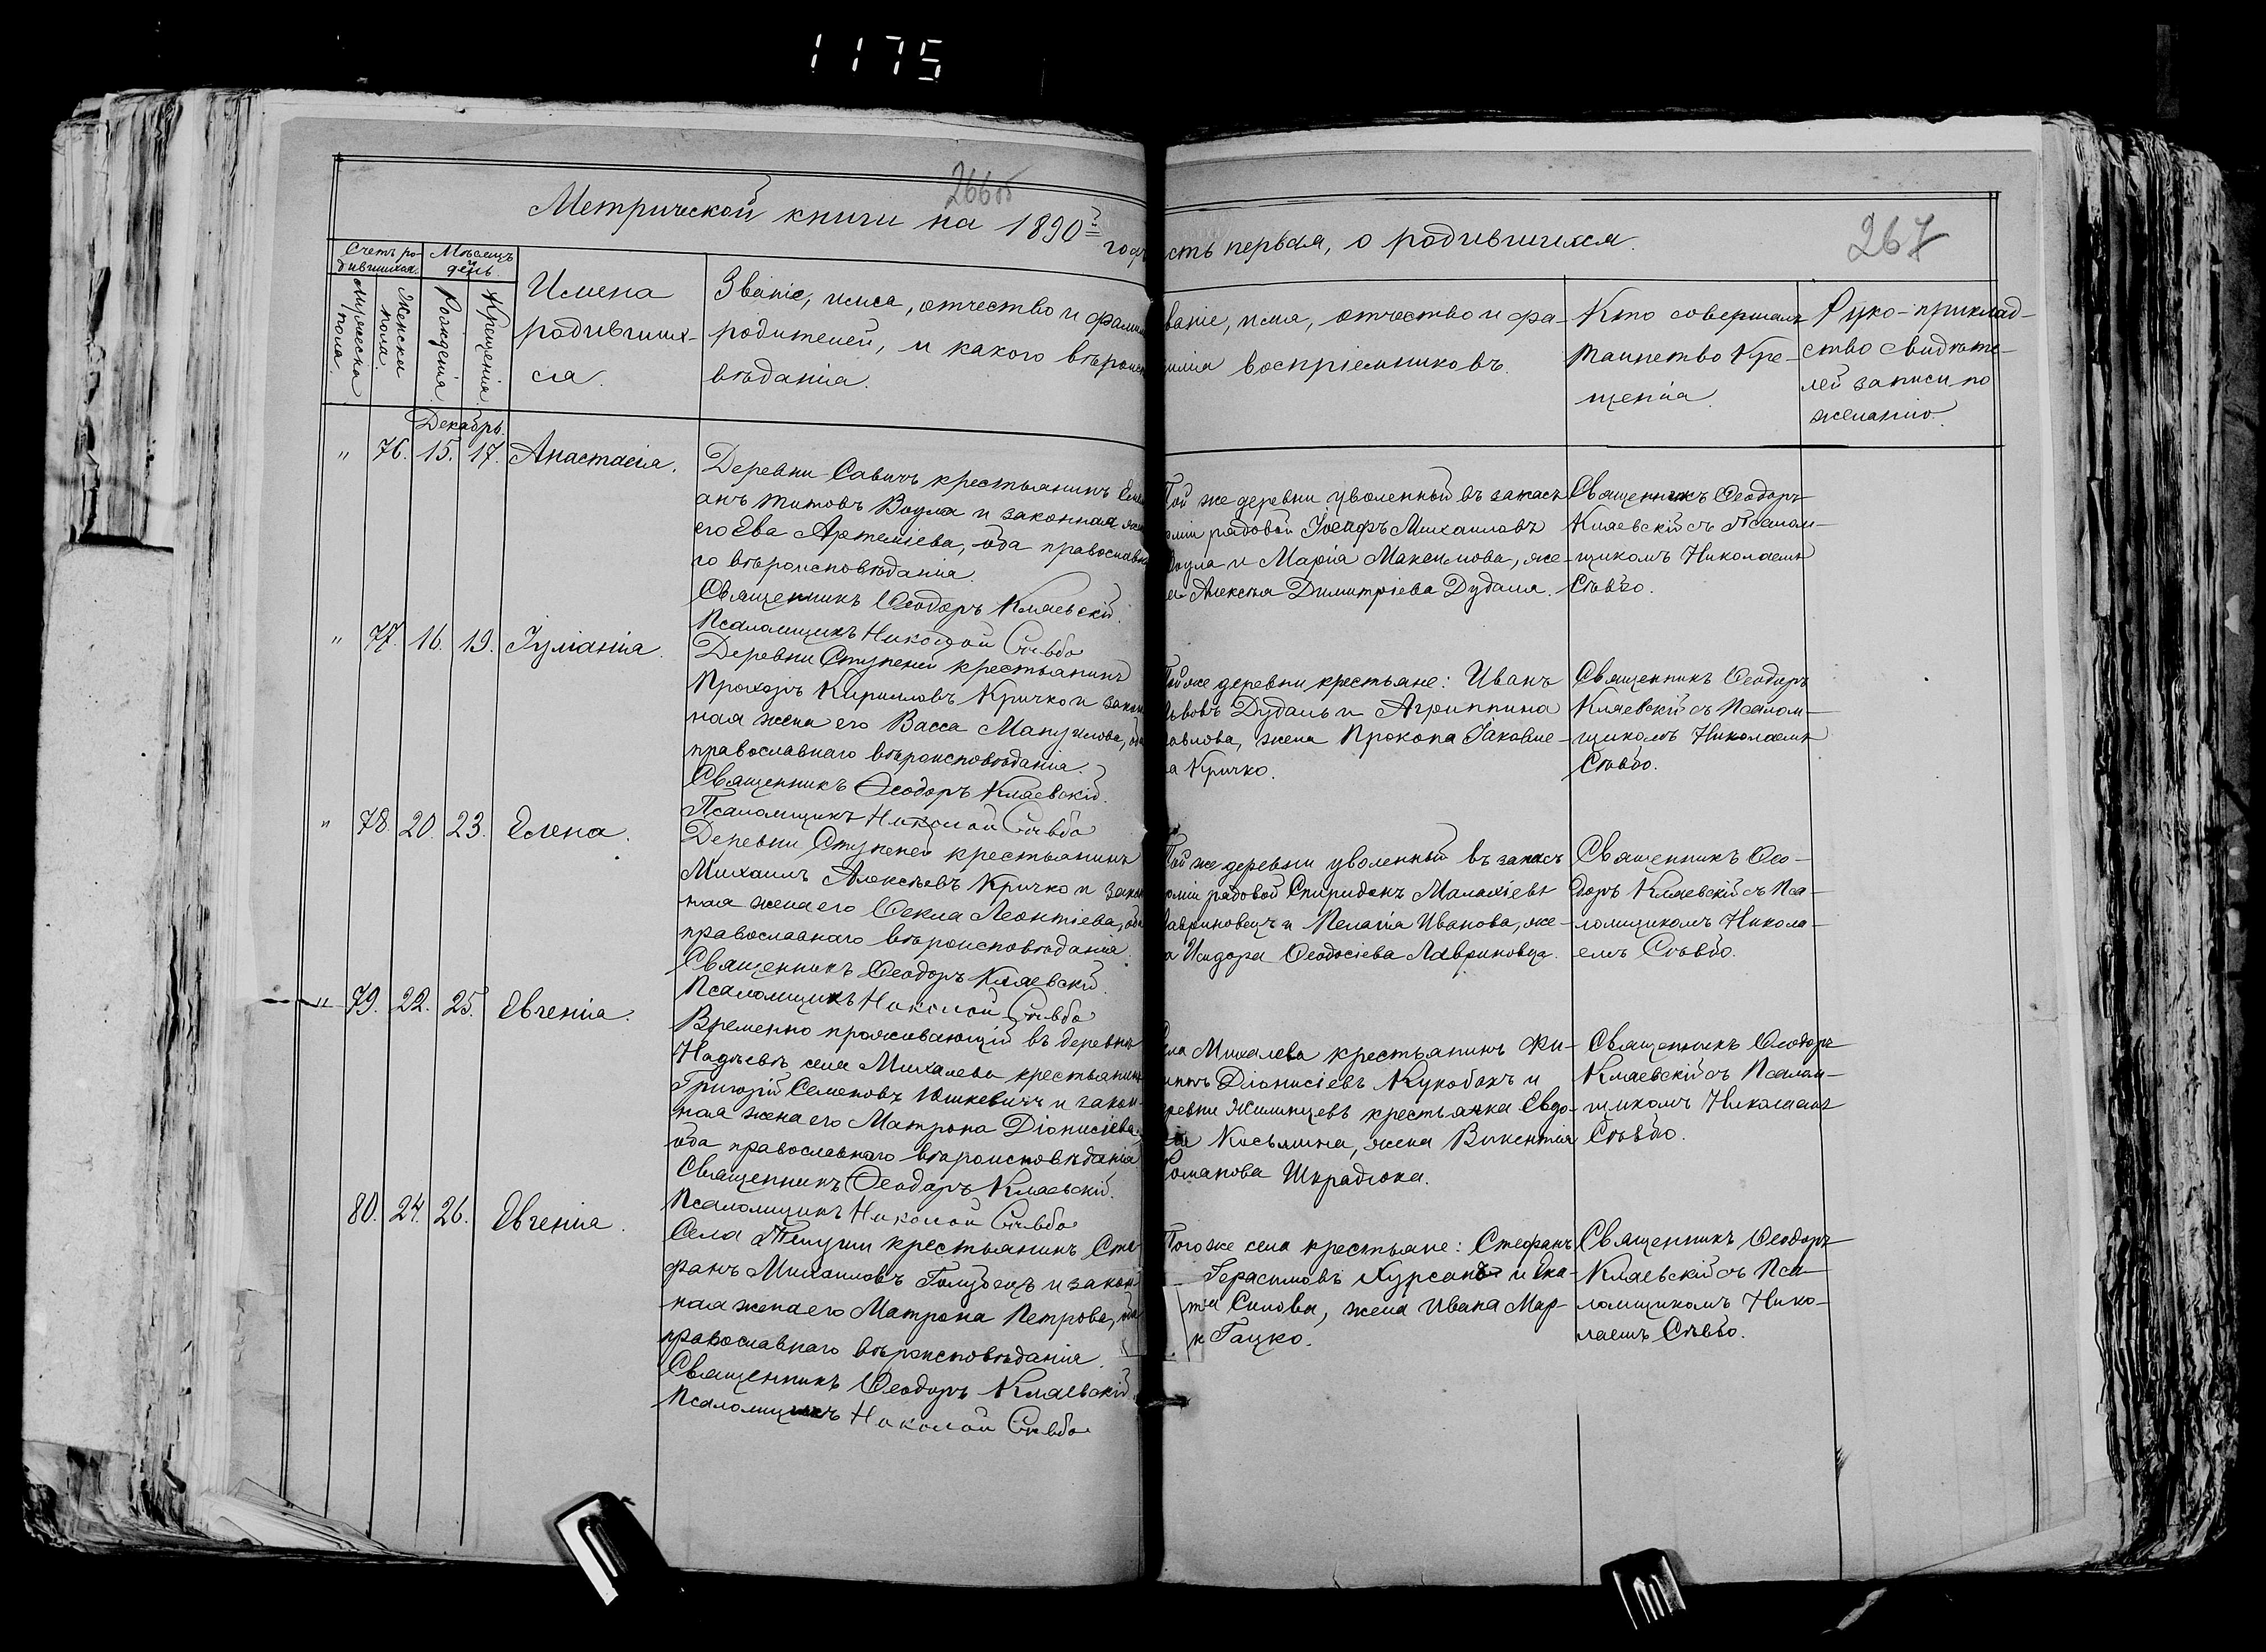 1175
266об
Метрической книги на 1890й годъ
сть первая, о родившихся.
267
Счетъ ро-
дившихся.
Мѣсяцъ
и
день.
Мужеска
пола.
Женска
пола.
Рожденія.
Крещенія.
Имена
родивших-
ся.
Званіе, имя, отчество и фамил
родителей, и какого вѣроиспо
вѣданія.
ваніе, имя, отчество и фа-
милія воспріемниковъ.
Кто совершалъ
таинство Кре-
щенія.
Руко-приклад-
ство свидѣте-
лей записи по
желанію.
Декабрь.
" 76. 15. 17. Анастасія.
Деревни Савичъ крестьянинъ
анъ Титовъ Воула и законная
его Ева Артеміева, оба православна
го вѣроисповѣданія.
Священникъ Ѳеодоръ Кляевскій.
Псаломщикъ Николай Сѣвбо
Той же деревни уволенный въ запасъ
арміи рядовой Іосифъ Михаиловъ
Воула и Марія Максимова, же-
на Алексѣя Димитріева Дудаля.
Священникъ Ѳеодоръ
Кляевскій съ Псалом-
щикомъ Николаемъ
Сѣвбо.
" 77. 16. 19. Іуліанія.
Деревни Ступеней крестьянинъ
Прохоръ Кирилловъ Кричко и закон
ная жена его Васса Мануилова, оба
православнаго вѣроисповѣданія.
Священникъ Ѳеодоръ Кляевскій.
Псаломщикъ Николай Сѣвбо
Той же деревни крестьяне: Иванъ
Львовъ Дудаль и Агриппина
авлова, жена Прокопа Іаковле-
ва Кричко.
Священникъ Ѳеодоръ
Кляевскій съ Псалом-
щикомъ Николаемъ
Сѣвбо.
" 78. 20. 23. Елена.
Деревни Ступеней крестьянинъ
Михаилъ Алексѣевъ Кричко и закон
ная жена его Ѳекла Леонтіева, оба
православнаго вѣроисповѣданія.
Священникъ Ѳеодоръ Кляевскій.
Псаломщикъ Николай Сѣвбо
Той же деревни уволенный въ запасъ
арміи рядовой Спиридонъ Малахіевъ
Лавриновецъ и Пелагія Иванова, же-
на Исидора Ѳеодосіева Лавриновца.
Священникъ Ѳео-
доръ Кляевскій съ Пса-
ломщикомъ Никола-
емъ Сѣвбо.
" 79. 22. 25. Евгенія.
Временно проживающій въ деревнѣ
Надѣевѣ, села Михалева крестьянинъ
Григорій Семеновъ Юшкевичъ и закон-
ная жена его Матрона Діонисіева,
оба православнаго вѣроисповѣданія.
Священникъ Ѳеодоръ Кляевскій.
Псаломщикъ Николай Сѣвбо
ела Михалева крестьянинъ Фи-
липъ Діонисіевъ Кукобакъ и
деревни Жилинцевъ крестьянка Евдо-
кія Косьмина, жена Викентія
Романова Шкрадюка.
Священникъ Ѳеодоръ
Кляевскій съ Псалом-
щикомъ Николаемъ
Сѣвбо.
80. 24. 26. Евгенія.
Села Телуши крестьянинъ Сте
фанъ Михаиловъ Голубецъ и закон
ная жена его Матрона Петрова, оба
православнаго вѣроисповѣданія.
Священникъ Ѳеодоръ Кляевскій.
Псаломщикъ Николай Сѣвбо
Того же села крестьяне: Стефанъ
Герасимовъ Хурсанъ и Ека-
Силова, жена Ивана Мар-
Гацко.
Священникъ Ѳеодоръ
Кляевскій съ Пса-
ломщикомъ Нико-
лаемъ Сѣвбо.